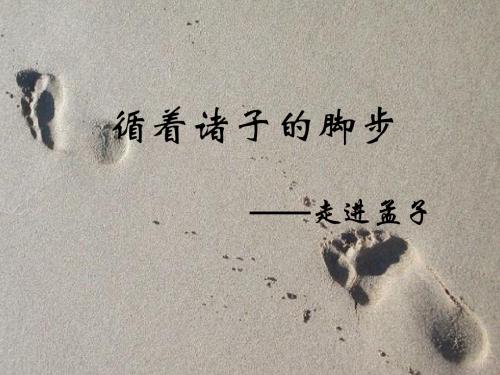 循着诸子的脚步
——走进孟子